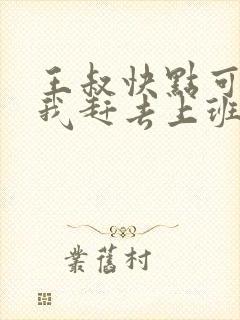 王叔快點可
我赶去上班
業舊村